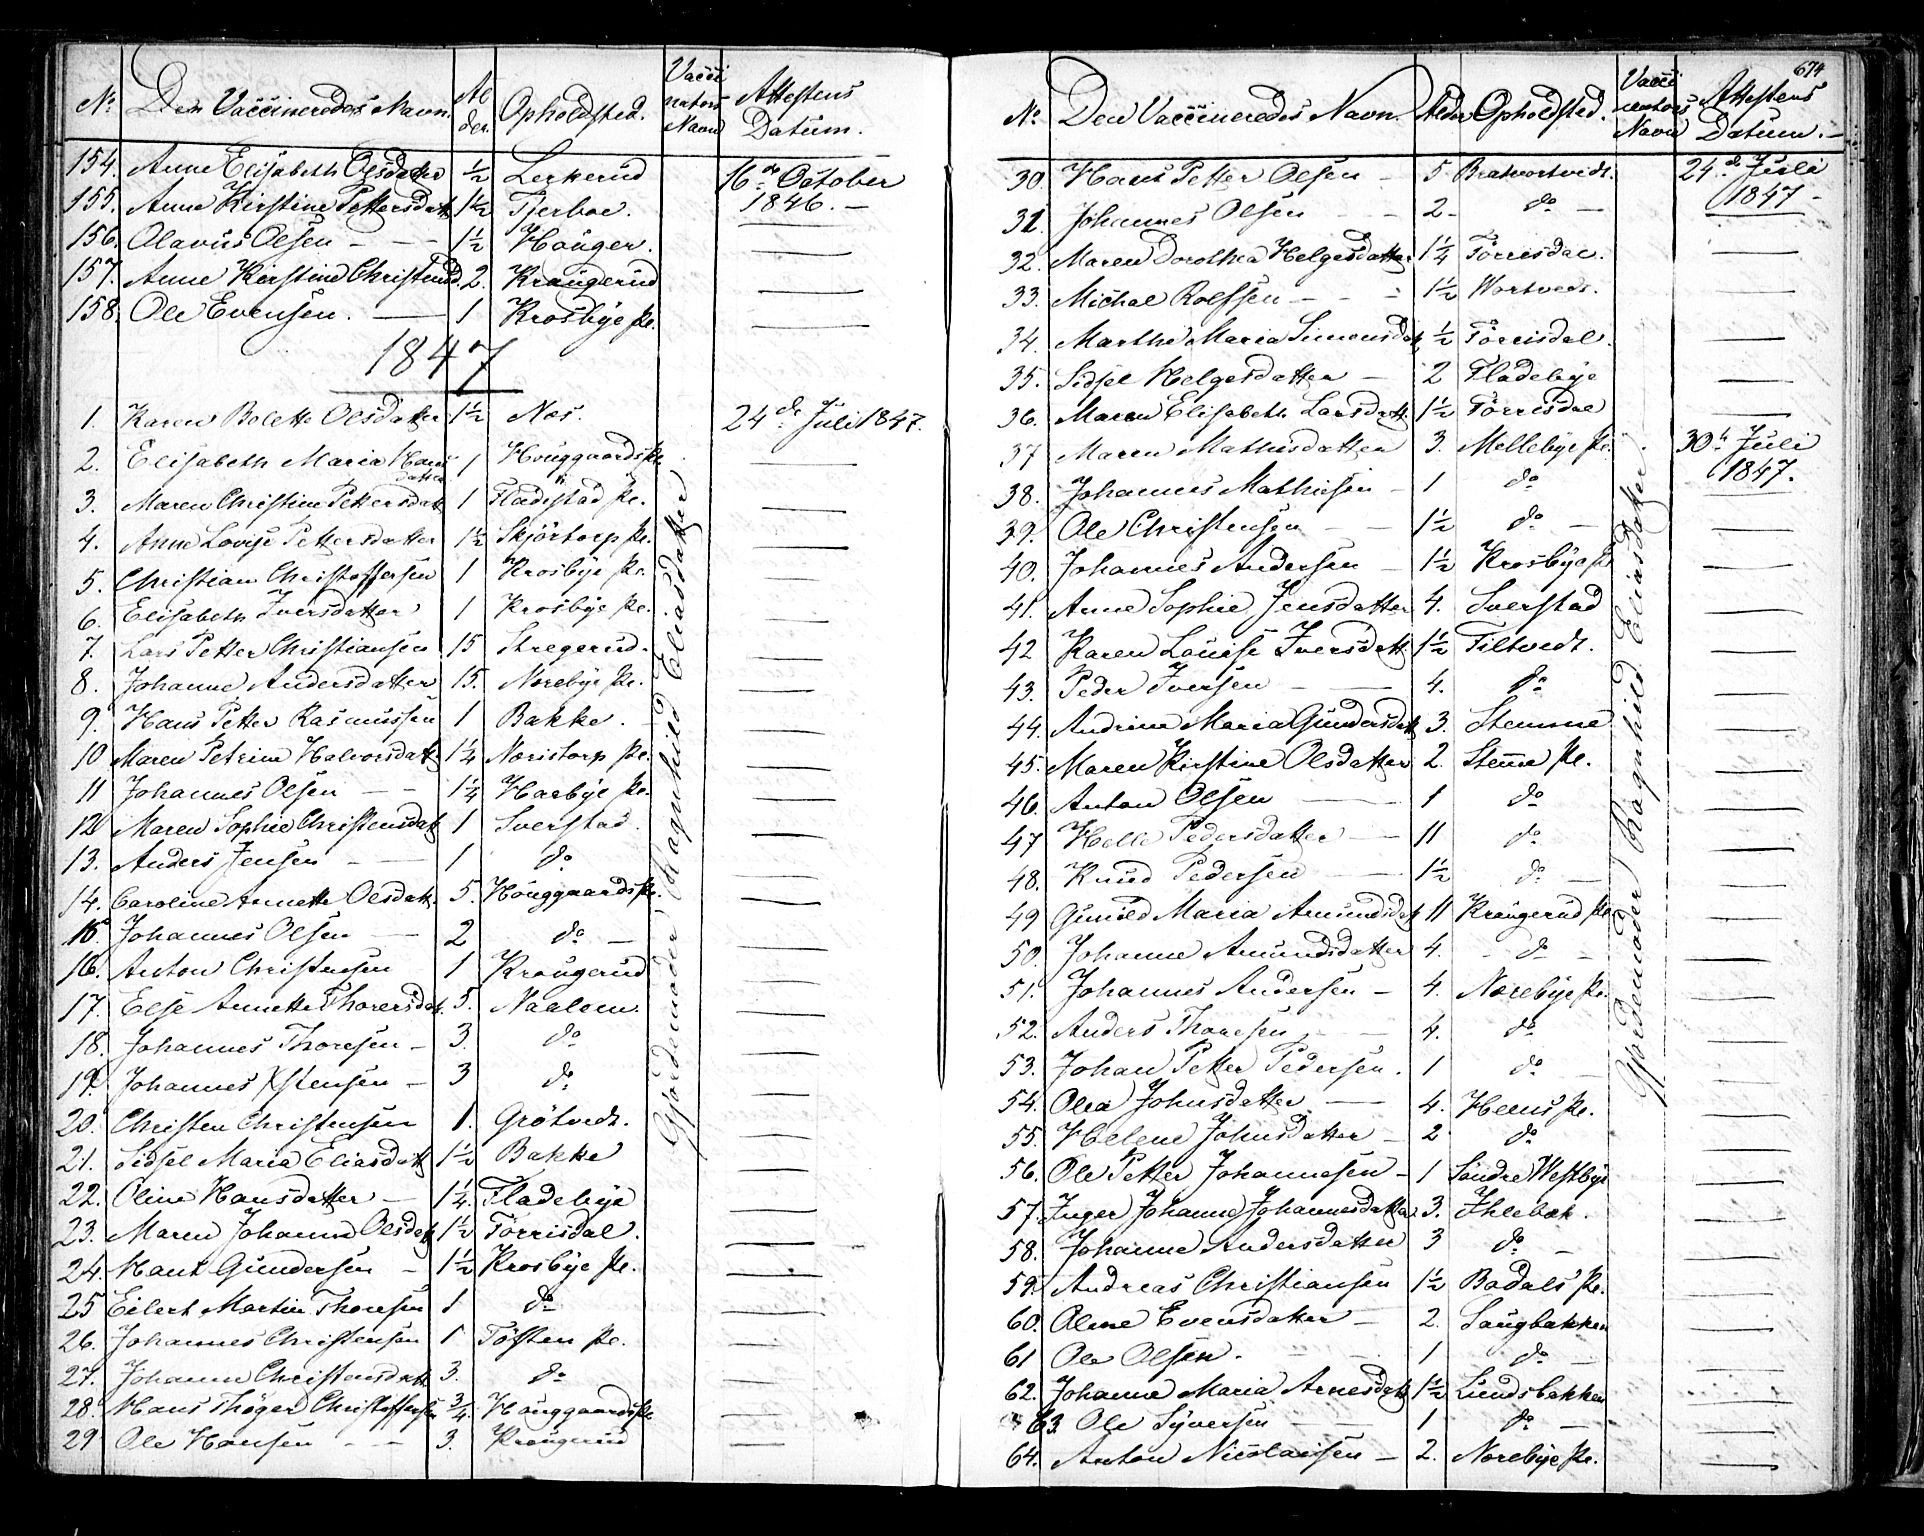 No. Den Vaccineredes Navn. Al der. Opholdsted. Vacci nators Navn Attestens Datum.
154. Anne Elisabeth Olsdatter ½ Lerkerud 16de October
155. Anne Kirstine Pettersdatt 1½ Tjerboe. 1846. —
156. Olavus Olsen — — 1½ Houger. —
157. Anne Kirstine Christensd. 2. Kraugerud —
158. Ole Evensen. — 1 Krosbye Pl. —
1847
1. Karen Bolette Olsdatter 1½ Næs. 24de Juli 1847.
2. Elisabeth Maria Hansdatter 1 Houggaards Pl. —
3. Maren Christine Pettersdatt 1 Fladestad Pl. —
4. Anne Lovise Pettersdatter 1½ Skjörtorp Pl. —
5. Christian Christoffersen 1 Krosbye Pl. —
6. Elisabeth Iversdatter 1 Krosbye Pl. —
7. Lars Petter Christiansen 15 Stregerud. —
8. Johanne Andersdatter 15. Norebye Pl. —
9. Hans Petter Rasmussen 1 Bakke. —
10 Maren Petrine Halvorsdatt. 1¼ Noristorp Pl. —
11 Johannes Olsen — — 1¼ Harbye Pl. —
12 Maren Sophie Christensdatt 1 Sverstad. —
13. Anders Jensen — — 1 do —
14. Caroline Annette Olsdatt. 5. Houggaards Pl. —
15. Johannes Olsen — 2 do — —
16. Anton Christensen 1 Kraugerud —
17. Else Annette Thorersdat. 5. Naalem. —
18. Johannes Thoresen — 3. do —
19. Johannes Xstensen — 3 do —
20. Christen Christensen 1. Grötvedt. —
21. Sidsel Maria Eliasdatt 1½ Bakke —
22. Oline Hansdatter — 1¼. Fladebye —
23. Maren Johanne Olsdatt 1½ Torrisdal. —
24. Hans Gundersen — 1½ Krosbye Pl. —
25 Eilert Martin Thoresen 1 do —
26. Johannes Christensen 1 Töften Pl. —
27. Johanne Christensdatt 3. do —
28. Hans Thöger Christoffersen ¾ Houggaards Pl. —
29 Ole Hansen — — 3. Kraugerud —
Gjordemoder Ragnhild Eliasdatter
674
No. Den Vaccineredes Navn. Alder Opholdsted. Vacci nators Navn Attestens Datum. —
30. Hans Petter Olsen — 5. Bratvortvedt. 24de Juli
31. Johannes Olsen — — 2 — do — 1847 —
32. Maren Dorothea Helgesdatter 1¼ Torrisdal. —
33. Michal Rolfsen — — 1½ Wortvedt. —
34. Marthe Maria Simonsdatt ½ Törrisdal. —
35. Sidsel Helgesdatter — 2 Fladebye —
36. Maren Elisabeth Larsdatt. 1½ Törrisdal —
37 Maren Mathisdatter 3. Mellebye Pl. 30te Juli
38. Johannes Mathiesen — 1 do 1847.
39. Ole Christensen — — 1½ do — —
40. Johannes Andersen — 1½ Krosbye Pl —
41. Anne Sophie Jensdatter 4. Sverstad —
42 Karen Louise Iversdatt 1½ Tiltvedt. —
43. Peder Iversen — — 4. do —
44. Andrine Maria Gundersdatt 3. Stemme —
45. Maren Kirstine Olsdatter 2. Stemme Pl. —
46. Anton Olsen — 1 do —
47 Helle Pedersdatter — 11 do —
48. Knud Pedersen — 1½ do — —
49 Gunild Maria Amundsdatt 11 Kraugerud Pl —
50. Johanne Amundsdatter 4. — do — —
51. Johannes Andersen — 4. Norebye Pl. —
52. Anders Thoresen — — 4. do —
53. Johan Petter Pedersen. 1 do — —
54. Olea Johnsdatter — 4. Heens Pl. —
55. Helene Johnsdatter — 2 do —
56. Ole Petter Johannesen — 1 Söndre Westbye —
57. Inger Johanne Johannesdatter 3. Ihlebæk. —
58. Johanne Andersdatter 3 do — —
59. Andreas Christiansen 1½ Badals Pl. —
60. Oline Evensdatter — 2. Saugbakken —
61 Ole Olsen. — — 1 do — —
62. Johanne Maria Arnesdatt 1½ Lundsbakken —
63. Ole Syversen — — 1 do — —
64. Anton Nicolaisen — 2. Norebye Pl. —
Gjordemoder Ragnhild Eliasdatter